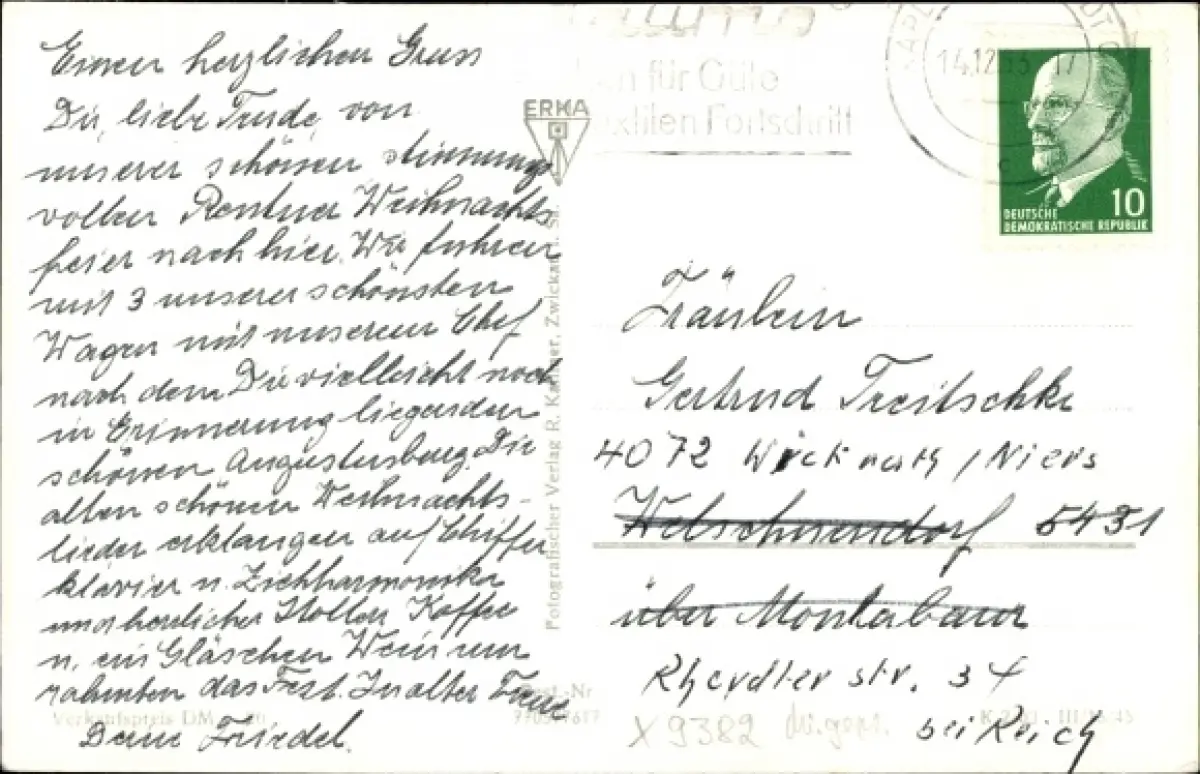 Einen herzlichen Gruss
Dir, liebe Trude, von
unserer schönen stimmungs
vollen Rentner Weihnachts
feier nach hier. Wir fuhren
mit 3 unserer schönsten
Wagen mit unserem Chef
nach dem Dir vielleicht noch
in Erinnerung liegenden
schönen Augustusburg. Die
alten schönen Weihnachts-
lieder erklangen auf Chiffer
klavier u. Ziehharmonika
und herrlicher Stollen Kaffee
u. ein Gläschen Wein um
rahmten das Fest. In alter Treue
Deine Friedel.
ERKA
Fotografischer Verlag R. Zwickau i. Sa.
für Güte
textilen Fortschritt
14.12.63. 17
C
10
DEUTSCHE
DEMOKRATISCHE REPUBLIK
Fräulein
Gertrud Treitschke
4072 Wickrath / Niers
Welschneudorf 5431
über Montabaur
Rheydter str. 34
bei Reich
Verkaufspreis DM
Best.-Nr
X 9382